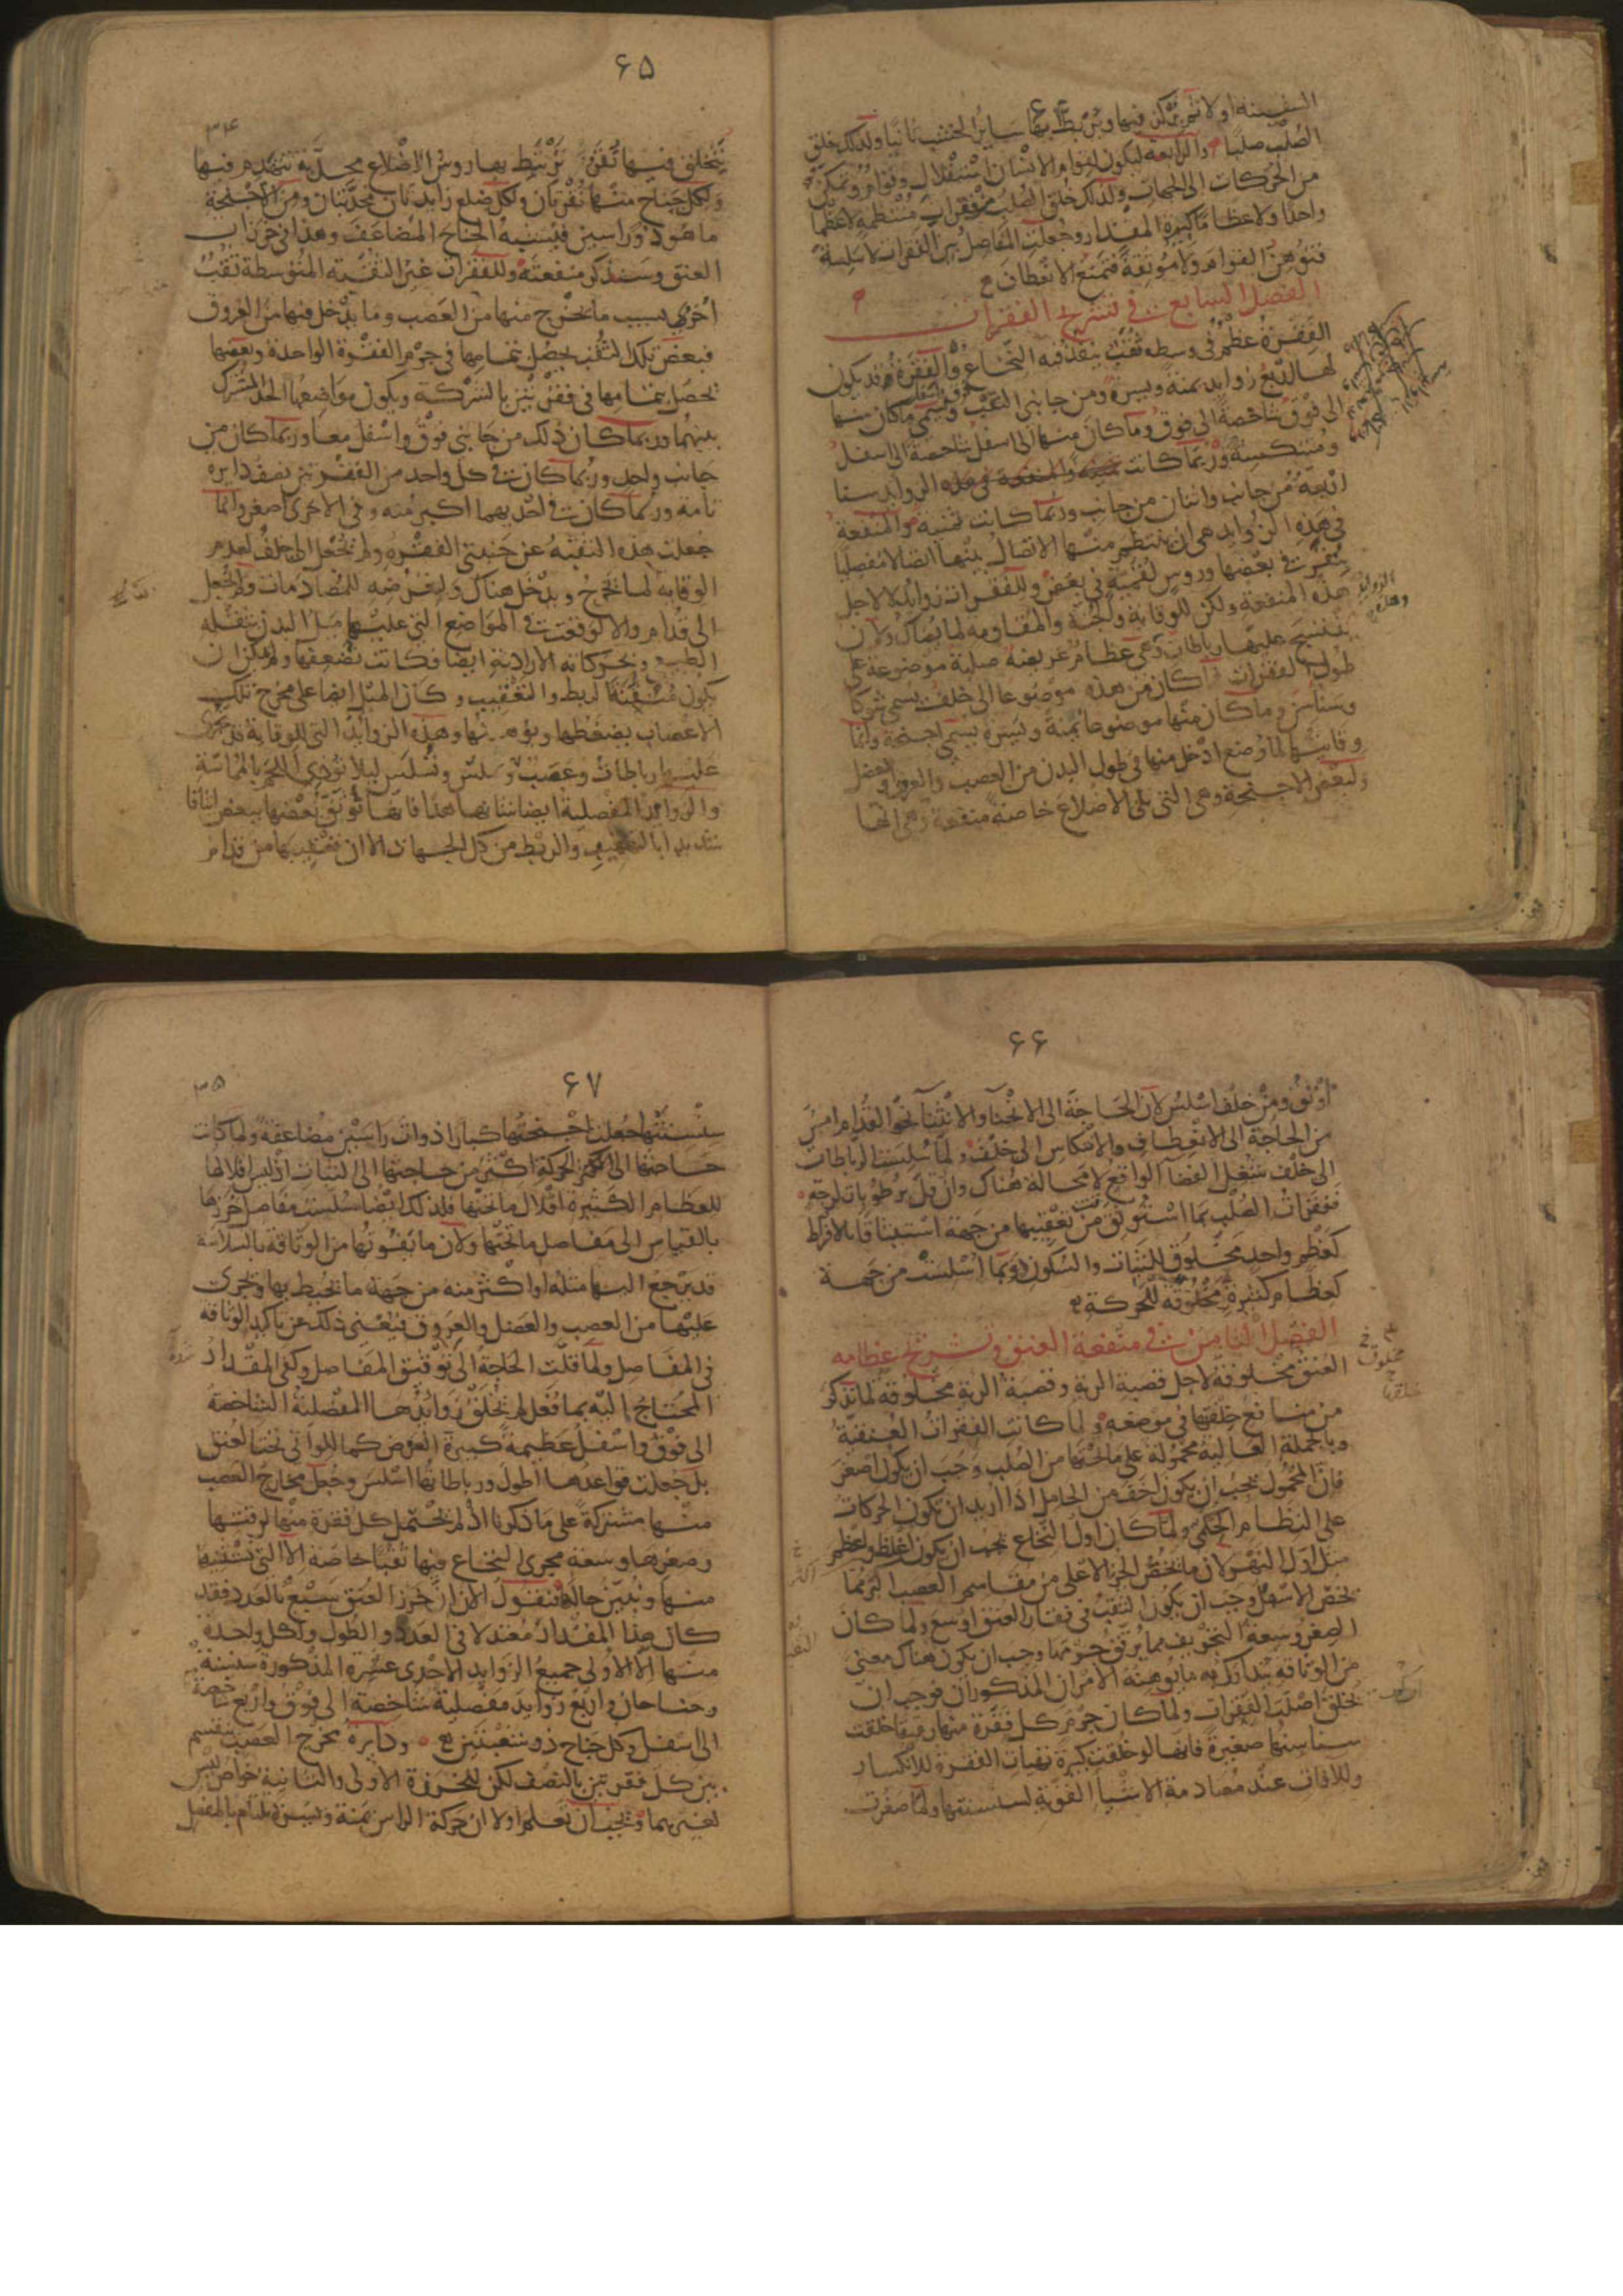 السفينة اولا ثم يركز فيها ويربط بها ساير الخشب ثانيا ولذلك خلق
الصلب صلبا والرابعة ليكون لقوام الانسان استقلال وقوام وتمكن
من الحركات الى الجهات ولذلك خلق الصلب من فقرات منتظمة لا عظما
واحدا ولا عظاما كبيرة المقدار وجعلت المفاصل بين الفقرات لا سلسة
فتوهن القوام ولا موثقة فتمنع الانعطاف
الفصل السابع في تشريح الفقرات
الفقرة عظم في وسطه ثقب ينفذ فيه النخاع والفقرة قد يكون
لها اربع زوايد يمنة ويسرة ومن جانبي الثقب ويسمى ما كان منها
الى فوق شاخصة الى فوق وما كان منها الى اسفل شاخصة الى اسفل
ومنتكسة وربما كانت الزوايد ستا
اربعة من جانب واثنان من جانب وربما كانت ثمنية والمنفعة
في هذه الزوايد هي ان ينتظم منها الاتصال بينها اتصالا مفصليا
بنقر في بعضها وروس لقمية في بعض وللفقرات زوايد لا لاجل
هذه المنفعة ولكن للوقاية والجنة والمقاومة لما يصاك ولان
ينتسج عليها رباطات وهي عظام عريضة صلبة موضوعة على
طول الفقرات فما كان من هذه موضوعا الى خلف يسمى شوكا
وسناسن وما كان منها موضوعا يمنة ويسرة يسمى اجنحة وانما
وقايتها لما وضع ادخل منها في طول البدن من العصب والعروق والعضل
ولبعض الاجنحة وهي التي تلي الاضلاع خاصة منفعة وهي انها
الزوايد
۶۵
۳۴
يتخلق فيها نقر يرتبط بها روس الاضلاع محدبة تتهندم فيها
ولكل جناح منها نقرتان ولكل ضلع زايدتان محدبتان ومن الاجنحة
ما هو ذو راسين فيشبه الجناح المضاعف وهذا في خرزات
العنق وسنذكر منفعته وللفقرات غير الثقبة المتوسطة ثقب
اخرى بسبب ما يخرج منها من العصب وما يدخل فيها من العروق
فبعض تلك الثقب يحصل بتمامها في جرم الفقرة الواحدة وبعضها
يحصل بتمامها في فقرتين بالشركة ويكون مواضعها الحد المشترك
بينهما وربما كان ذلك من جانبي فوق واسفل معا وربما كان من
جانب واحد وربما كان في كل واحد من الفقرتين نصف دايرة
تامة وربما كان في احديهما اكبر منه وفي الاخرى اصغر وانما
جعلت هذه الثقبة عن جنبتي الفقرة ولم تجعل الى خلف لعدم
الوقاية لما يخرج ويدخل هناك ولتعرضه للمصادمات ولم تجعل
الى قدام والا لوقعت في المواضع التي عليها ميل البدن بثقله
الطبيعي وبحركاته الارادية ايضا فكانت تضعفها ولم يمكن ان
يكون متقنة الربط والتعقيب وكان الميل ايضا على مخرج تلك
الاعصاب يضغطها ويوهنها وهذه الزوايد التي للوقاية قد يجري
عليها رباطات وعصب وسلس ونسلس ليلا تؤذي اللحم بالمماسة
والزوايد المفصلية ايضا شانها هذا فانها توثق بعضها ببعض ايثاقا
شديدا بالتعقيب والربط من كل الجهات الا ان تعقيبها من قدام
۶۶
اوثق ومن خلف اسلس لان الحاجة الى الانحنا والانثنا نحو القدام امس
من الحاجة الى الانعطاف والانتكاس الى خلف ولما سلست الرباطات
الى خلف شغل الفضا الواقع لا محالة هناك وان قل برطوبات لزجة
ففقرات الصلب بما استوثق من تعقيبها من جهة استيثاقا بالافراط
كعظم واحد مخلوق للثبات والسكون وبما اسلست من جهة
كعظام كثيرة مخلوقة للحركة
الفصل الثامن في منفعة العنق وتشريح عظامه
العنق مخلوقة لاجل قصبة الرية وقصبة الرية مخلوقة لما نذكر
من منافع خلقتها في موضعه ولما كانت الفقرات العنقية
وبالجملة العالية محمولة على ما تحتها من الصلب وجب ان يكون اصغر
فان المحمول يجب ان يكون اخف من الحامل اذا اريد ان يكون الحركات
على النظام الحكمي ولما كان اول النخاع يجب ان يكون اغلظ واعظم
مثل اول النهر لان ما يخص الجزء الاعلى من مقاسم العصب اكثر مما
يخص الاسفل وجب ان يكون الثقب في فقار العنق اوسع ولما كان
الصغر وسعة التجويف مما يرقق جرمها وجب ان يكون هناك معنى
من الوثاقة يتدارك به ما يوهنه الامران المذكوران فوجب ان
يخلق اصلب الفقرات ولما كان جرم كل فقرة منها رقيقا خلقت
سناسنها صغيرة فانها لو خلقت كبيرة تهيات الفقرة للانكسار
وللافات عند مصادمة الاشيا القوية لسنسنتها ولما صغرت
۶۷
۳۵
سنسنتها جعلت اجنحتها كبارا ذوات راسين مضاعفة ولما كانت
حاجتها الى الحركة اكثر من حاجتها الى الثبات اذ ليس اقلالها
للعظام الكثيرة اقلال ما تحتها فلذلك ايضا سلست مفاصل خرزها
بالقياس الى مفاصل ما تحتها ولان ما يفوتها من الوثاقة بالسلاسة
قد يرجع اليها مثله او اكثر منه من جهة ما يحيط بها ويجري
عليها من العصب والعضل والعروق فيغني ذلك عن تاكيد الوثاقة
في المفاصل ولما قلت الحاجة الى توثيق المفاصل وكفى المقدار
المحتاج اليه بما فعل لم تخلق زوايدها المفصلية الشاخصة
الى فوق واسفل عظيمة كبيرة العرض كما للواتي تحت العنق
بل جعلت قواعدها اطول ورباطاتها اسلس وجعل مخارج العصب
منها مشتركة على ما ذكرنا اذ لم يحتمل كل فقرة منها لرقتها
وصغرها وسعة مجرى النخاع فيها ثقبا خاصة الا التي نستثنيها
منها ونبين حاله فنقول الان ان خرز العنق سبع بالعدد فقد
كان هذا المقدار معتدلا في العدد والطول ولكل واحدة
منها الا الاولى جميع الزوايد الاحدى عشرة المذكورة سنسنة
وجناحان واربع زوايد مفصلية شاخصة الى فوق واربع شاخصة
الى اسفل وكل جناح ذو شعبتين ودايرة مخرج العصب ينقسم
بين كل فقرتين بالنصف لكن للخرزة الاولى والثانية خواص ليس
لغيرهما ويجب ان تعلم اولا ان حركة الراس يمنة ويسرة يلتام بالمفصل